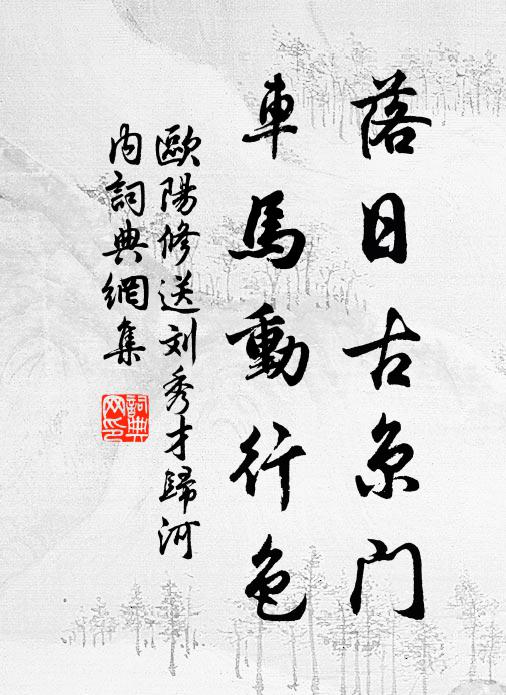 落日古京门
車馬動行色
歐陽修送刘秀才歸河
内詞典網集
詞典
网印